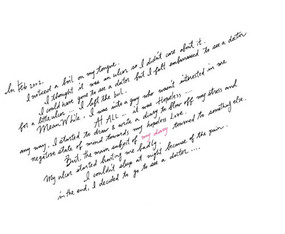 In Feb 2012.
I noticed a boil on my tongue.
I thought it was an ulcer so I didn't care about it.
I could have gone to see a doctor but I felt embarrassed to see a doctor
for a little ulcer. I left the boil.
Mean While, I was into a guy who wasn't interested in me
At ALL ... it was Hopeless ....
any way, I started to draw & write a diary to blow off my stress and
negative state of mind towards my hopeless Love.
But, the main subject of my diary turned to something else.
My ulcer started hurting me badly.
I couldn't sleep at night because of the pain.
in the end, I decided to go to see a doctor ....